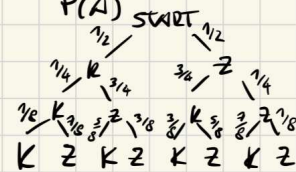 P(A)
START
1/2 1/2
1/4 K 3/4 3/4 Z 1/4
1/8 K 7/8 5/8 Z 3/8 3/8 K 5/8 7/8 Z 1/8
K Z K Z K Z K Z